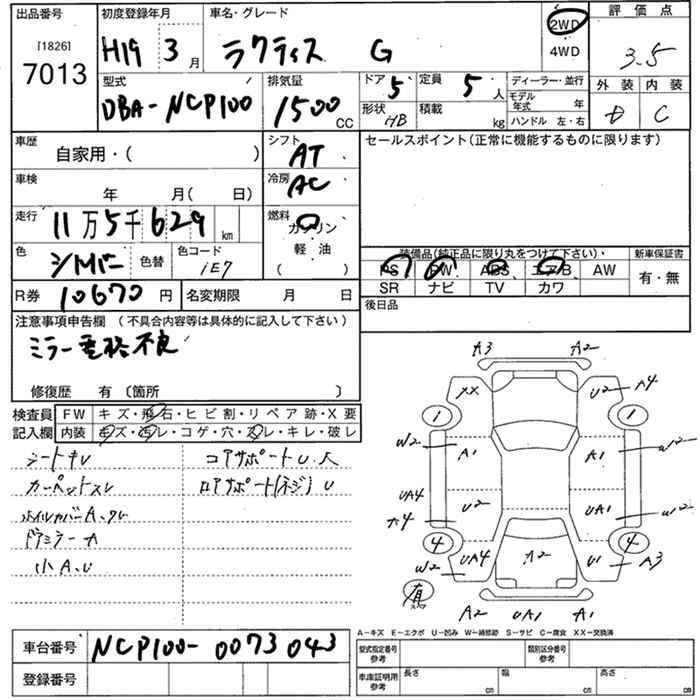 出品番号
[1826]
7013
初度登録年月
H19 3月
車名・グレード
ラクティス G
2WD
4WD
評価点
3.5
外装 内装
D C
型式
DBA-NCP100
排気量
1500 CC
ドア 5
定員 5人
形状 HB
積載 kg
ディーラー・並行
モデル年式 年
ハンドル 左・右
車歴
自家用・( )
シフト
AT
セールスポイント(正常に機能するものに限ります)
車検
年 月( 日)
冷房
AC
走行
11万5千629 km
燃料
ガソリン
軽油
( )
色
シルバー
色替
色コード
1E7
装備品(純正品に限り丸をつけて下さい)・
新車保証書
PS PW ABS エアB AW
SR ナビ TV カワ
有・無
R券 10670円
名変期限 月 日
後日品
注意事項申告欄 (不具合内容等は具体的に記入して下さい)
ミラー電格不良
修復歴 有〔箇所 〕
検査員
記入欄
FW キズ・飛石・ヒビ割・リペア跡・X要
内装 キズ・汚レ・コゲ・穴・スレ・キレ・破レ
シートキレ
コアサポートU.大
カーペットスレ
ロアサポート(ネジ)U
ホイルカバーA.クレ
ドアミラーA
小A.U
A3 A2
XX U2 A4
1 1
W2 A1 A1 W2
UA4 U2 UA1 W2
A4
4 4
W2 UA4 A2 U1 A3
有
スペア
A2 UA1 A1
A-キズ E-エクボ U-凹み W-補修跡 S-サビ C-腐食 XX-交換済
車台番号 NCP100-0073043
登録番号
型式指定番号
参考
類別区分番号
参考
車庫証明用
参考
長さ cm
幅 cm
高さ cm